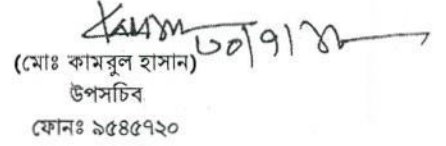 ৩০/৭/
(মোঃ কামরুল হাসান)
উপসচিব
ফোনঃ ৯৫৪৫৭২০